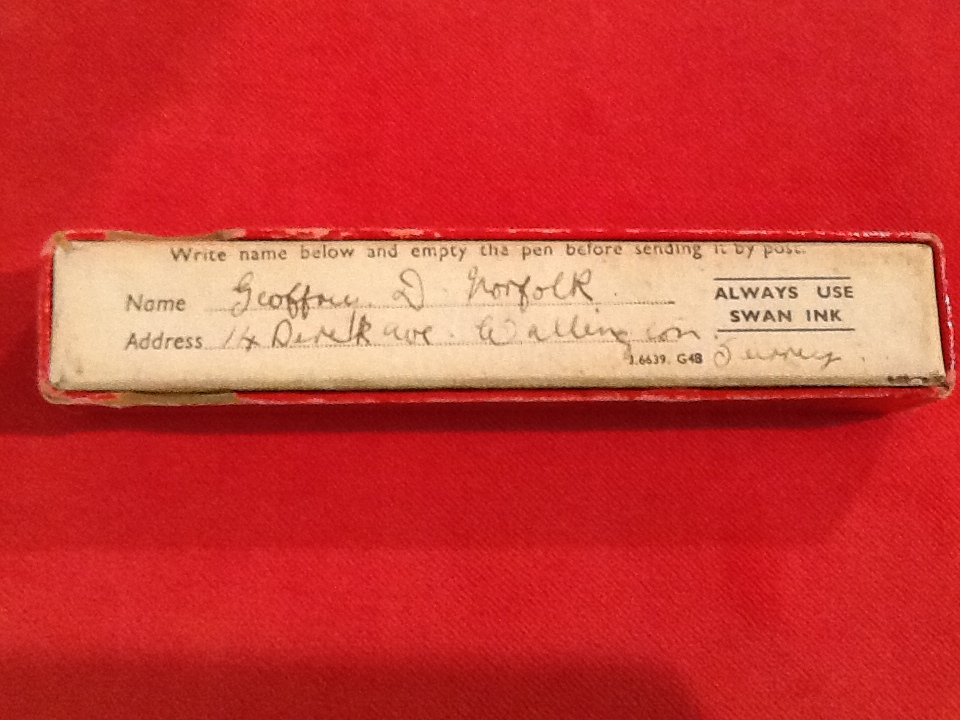 Write name below and empty the pen before sending it by post.
Name Geoffrey D. Norfolk
ALWAYS USE
SWAN INK
Address 14 Derek ave. Wallington
J.6639. G48 Surrey.